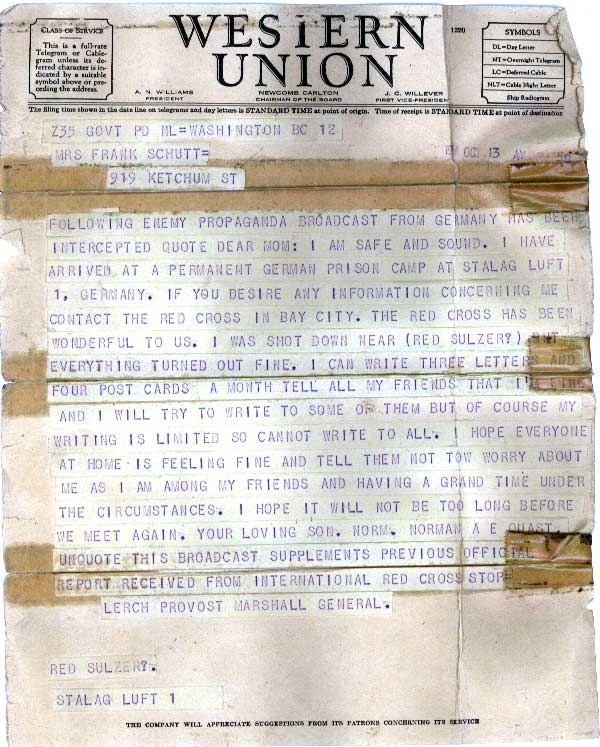 CLASS OF SERVICE
This is a full-rate
Telegram or Cable-
gram unless its de-
ferred character is in-
dicated by a suitable
symbol above or pre-
ceding the address.
WESTERN
UNION
1220
A. N. WILLIAMS
PRESIDENT
NEWCOMB CARLTON
CHAIRMAN OF THE BOARD
J. C. WILLEVER
FIRST VICE-PRESIDENT
SYMBOLS
DL=Day Letter
NT=Overnight Telegram
LC=Deferred Cable
NLT=Cable Night Letter
Ship Radiogram
The filing time shown in the date line on telegrams and day letters is STANDARD TIME at point of origin. Time of receipt is STANDARD TIME at point of destination
Z35 GOVT PD NL=WASHINGTON BC 12
MRS FRANK SCHUTT=
OCT 13 AM
919 KETCHUM ST
FOLLOWING ENEMY PROPAGANDA BROADCAST FROM GERMANY HAS BEEN
INTERCEPTED QUOTE DEAR MOM: I AM SAFE AND SOUND. I HAVE
ARRIVED AT A PERMANENT GERMAN PRISON CAMP AT STALAG LUFT
1, GERMANY. IF YOU DESIRE ANY INFORMATION CONCERNING ME
CONTACT THE RED CROSS IN BAY CITY. THE RED CROSS HAS BEEN
WONDERFUL TO US. I WAS SHOT DOWN NEAR (RED SULZER?) BUT
EVERYTHING TURNED OUT FINE. I CAN WRITE THREE LETTERS AND
FOUR POST CARDS A MONTH TELL ALL MY FRIENDS THAT I'M FINE
AND I WILL TRY TO WRITE TO SOME OF THEM BUT OF COURSE MY
WRITING IS LIMITED SO CANNOT WRITE TO ALL. I HOPE EVERYONE
AT HOME IS FEELING FINE AND TELL THEM NOT TOW WORRY ABOUT
ME AS I AM AMONG MY FRIENDS AND HAVING A GRAND TIME UNDER
THE CIRCUMSTANCES. I HOPE IT WILL NOT BE TOO LONG BEFORE
WE MEET AGAIN. YOUR LOVING SON. NORM. NORMAN A E QUAST.
UNQUOTE THIS BROADCAST SUPPLEMENTS PREVIOUS OFFICIAL
REPORT RECEIVED FROM INTERNATIONAL RED CROSS STOP=
LERCH PROVOST MARSHALL GENERAL.
RED SULZER?.
STALAG LUFT 1
THE COMPANY WILL APPRECIATE SUGGESTIONS FROM ITS PATRONS CONCERNING ITS SERVICE